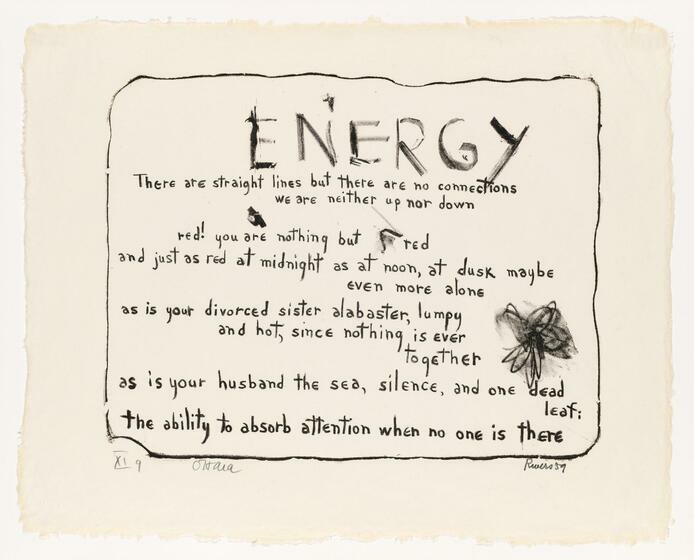 ENERGY
There are straight lines but there are no connections
we are neither up nor down
red! you are nothing but red
and just as red at midnight as at noon, at dusk maybe
even more alone
as is your divorced sister alabaster, lumpy
and hot, since nothing is ever
together
as is your husband the sea, silence, and one dead
leaf:
the ability to absorb attention when no one is there
XI 9 O'Hara Rivers 59